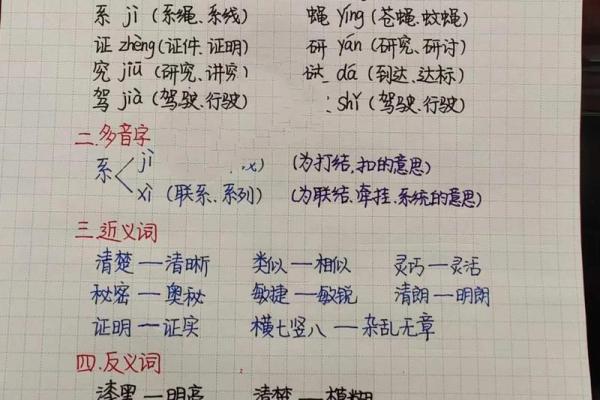 系 jì (系绳、系线) 蝇 yíng (苍蝇、蚊蝇)
证 zhèng (证件、证明) 研 yán (研究、研讨)
究 jiū (研究、讲究) dá (到达、达标)
驾 jià (驾驶、行驶) shǐ (驾驶、行驶)
二.多音字
系 jì (为打结、扣的意思)
xì (联系、系列) (为联结、牵挂、系统的意思)
三.近义词
清楚—清晰 类似—相似 灵巧—灵活
秘密—奥秘 敏捷—敏锐 清朗—明朗
证明—证实 横七竖八—杂乱无章
四.反义词
漆黑—明亮 清楚—模糊